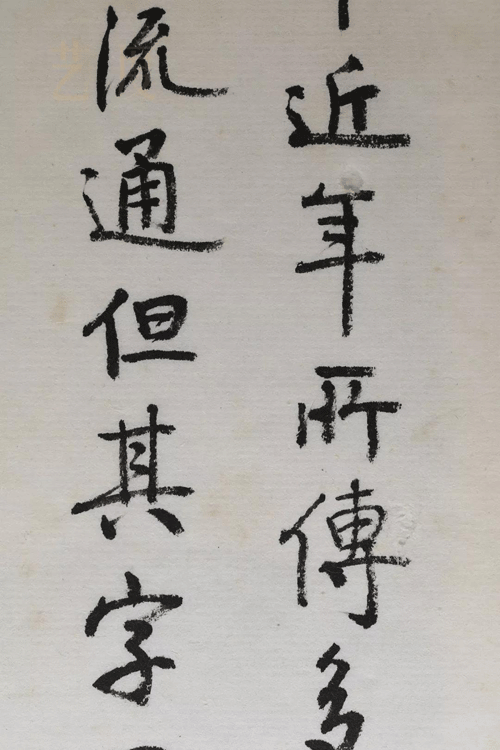 近年所傳多
流通但其字